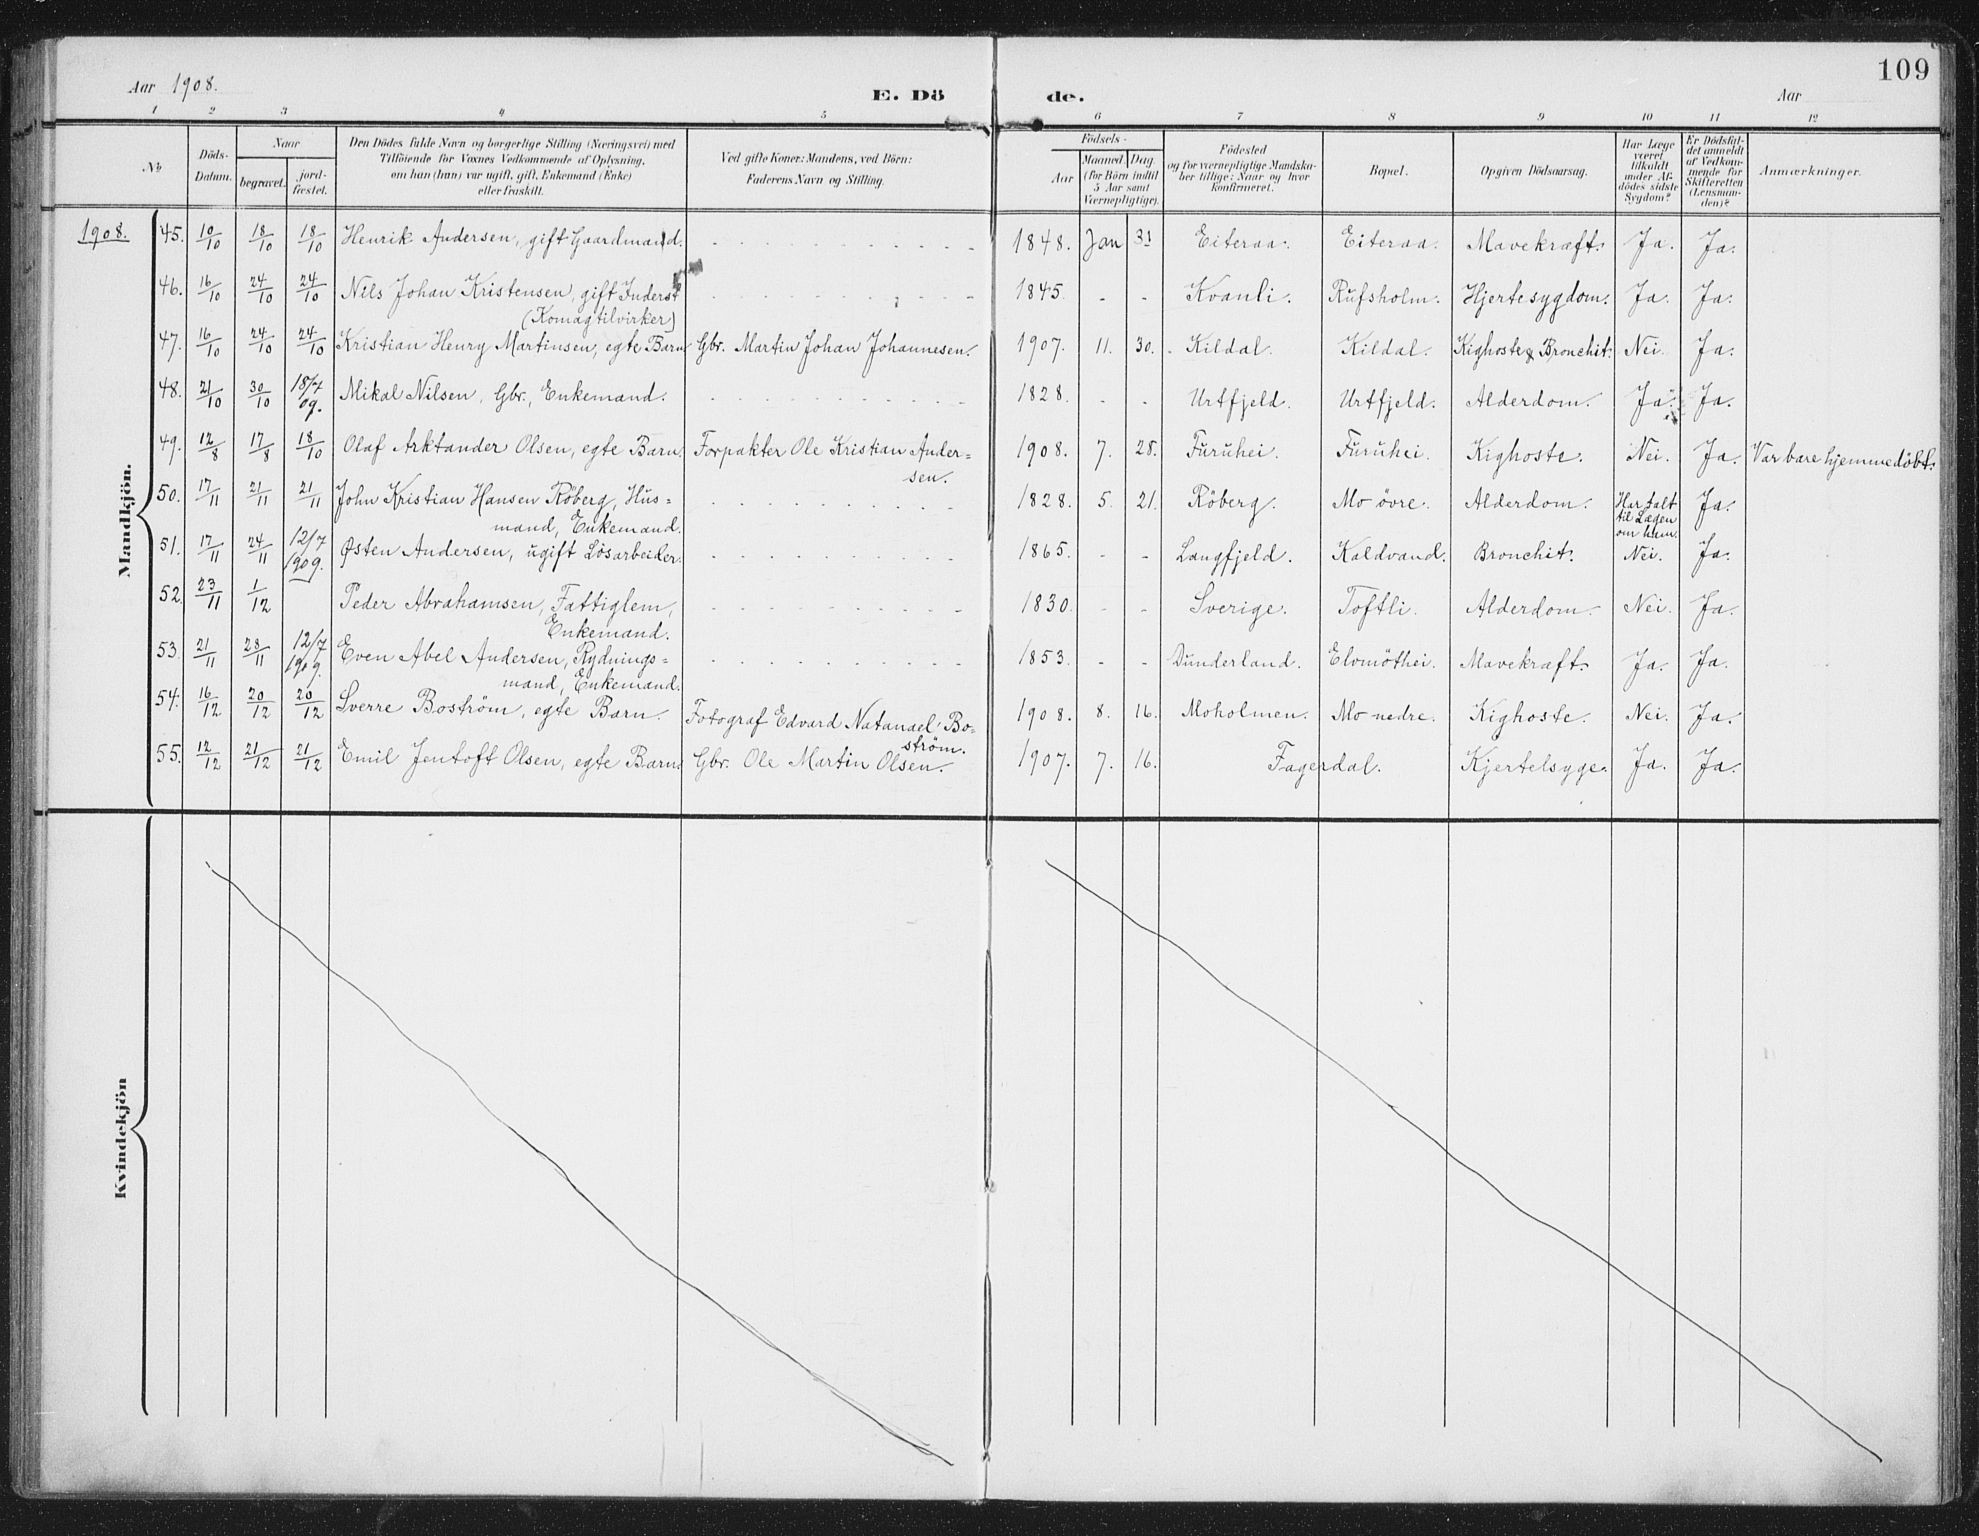 109
Aar 1908.
E. Dö de.
Aar
1 2 3 4 5 6 7 8 9 10 11 12
No
Döds-Datum.
Naar
begravet.
jord-fæstet.
Den Dödes fulde Navn og borgerlige Stilling (Næringsvei) med
Tilföiende for Voxnes Vedkommende af Oplysning,
om han (hun) var ugift, gift, Enkemand (Enke)
eller fraskilt.
Ved gifte Koner: Mandens, ved Börn:
Faderens Navn og Stilling.
Födsels-
Aar
Maaned. Dag.
(for Börn indtil
5 Aar samt
Værnepligtige).
Födested
og for værnepligtige Mandska-
ber tillige: Naar og hvor
konfirmeret.
Bopæl.
Opgiven Dödsaarsag.
Har Læge
været
tilkaldt
under Af-
dödes sidste
Sygdom?
Er Dödsfal-
det anmeldt
af Vedkom-
mende for
Skifteretten
(Lensman-
den)?
Anmærkninger.
Mandkjön.
1908. 45. 10/10 18/10 18/10 Henrik Andersen, gift Gaardmand. 1848. Jan 31 Eiteraa. Eiteraa. Mavekræft. Ja. Ja.
46. 16/10 24/10 24/10 Nils Johan Kristensen, gift Inderst 1845. - - Kvanli. Rufsholm. Hjertesygdom. Ja. Ja.
(Komagtilvirker)
47. 16/10 24/10 24/10 Kristian Henry Martinsen, egte Barn Gbr. Martin Johan Johannesen. 1907. 11. 30. Kildal. Kildal. Kighoste & Bronchit. Nei. Ja.
48. 21/10 30/10 18/7 09. Mikal Nilsen, Gbr., Enkemand. 1828. - - Urtfjeld. Urtfjeld. Alderdom. Ja. Ja.
49. 12/8 17/8 18/10 Olaf Arktander Olsen, egte Barn. Forpakter Ole Kristian Ander= 1908. 7. 28. Furuhei. Furuhei. Kighoste. Nei. Ja. Var bare hjemmedöbt.
sen.
50. 17/11 21/11 21/11 John Kristian Hansen Röberg, Hus= 1828. 5. 21. Röberg. Mo övre. Alderdom. Har talt til Lægen om ham. Ja.
mand, Enkemand.
51. 17/11 24/11 12/7 1909. Østen Andersen, ugift Lösarbeider. 1865. - - Langfjeld. Kaldvand. Bronchit. Nei. Ja.
52. 23/11 1/12 Peder Abrahamsen, Fattiglem, 1830. - - Sverige. Toftli. Alderdom. Nei. Ja.
Enkemand.
53. 21/11 28/11 12/7 1909. Even Abel Andersen, Rydnings= 1853. - - Dunderland. Elvmöthei. Mavekræft. Ja. Ja.
mand, Enkemand.
54. 16/12 20/12 20/12 Sverre Boström, egte Barn. Fotograf Edvard Natanael Bo= 1908. 8. 16. Moholmen. Mo nedre. Kighoste. Nei. Ja.
ström.
55. 12/12 21/12 21/12 Emil Jentoft Olsen, egte Barn. Gbr. Ole Martin Olsen. 1907. 7. 16. Fagerdal. Kjertelsyge. Ja. Ja.
Kvindekjön